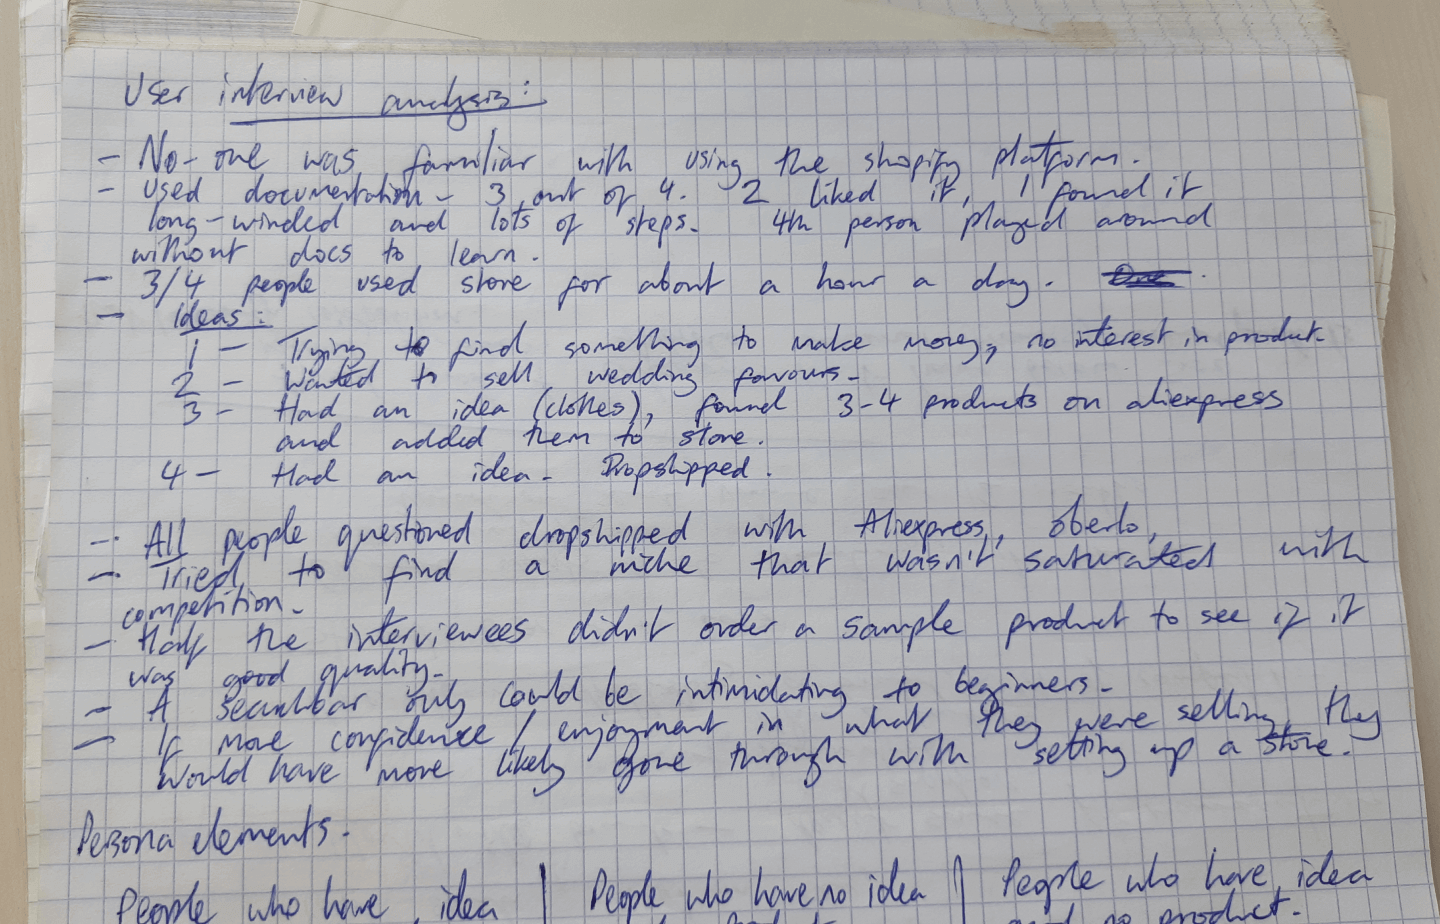 User interview analysis:
- No-one was familiar with using the shopify platform.
- Used documentation - 3 out of 4. 2 liked it, 1 found it
long-winded and lots of steps. 4th person played around
without docs to learn.
- 3/4 people used store for about a hour a day.
- Ideas:
1 - Trying to find something to make money, no interest in product.
2 - Wanted to sell wedding favours.
3 - Had an idea (clothes), found 3-4 products on aliexpress
and added them to store.
4 - Had an idea. Dropshipped.
- All people questioned dropshipped with Aliexpress, oberlo,
- Tried to find a niche that wasn't saturated with
competition.
- Half the interviewees didn't order a sample product to see if it
was good quality.
- A searchbar only could be intimidating to beginners.
- If more confidence / enjoyment in what they were selling, they
would have more likely gone through with setting up a store.
Persona elements.
People who have idea | People who have no idea | People who have idea
and no product.